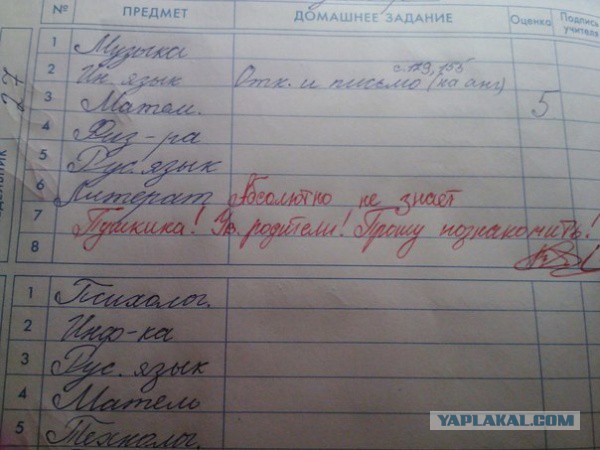 № ПРЕДМЕТ ДОМАШНЕЕ ЗАДАНИЕ Оценка Подпись учителя
1 Музыка
2 Ин. язык Отк. и письмо (на анг) с. 129, 155
3 Матем. 5
4 Физ-ра
5 Рус. язык
6 Литерат Абсолютно не знает
7 Пушкина! Ув. родители! Прошу познакомить!
8
1 Психолог.
2 Инф-ка
3 Рус. язык
4 Матем
5 Технолог.
27
YAPLAKAL.COM